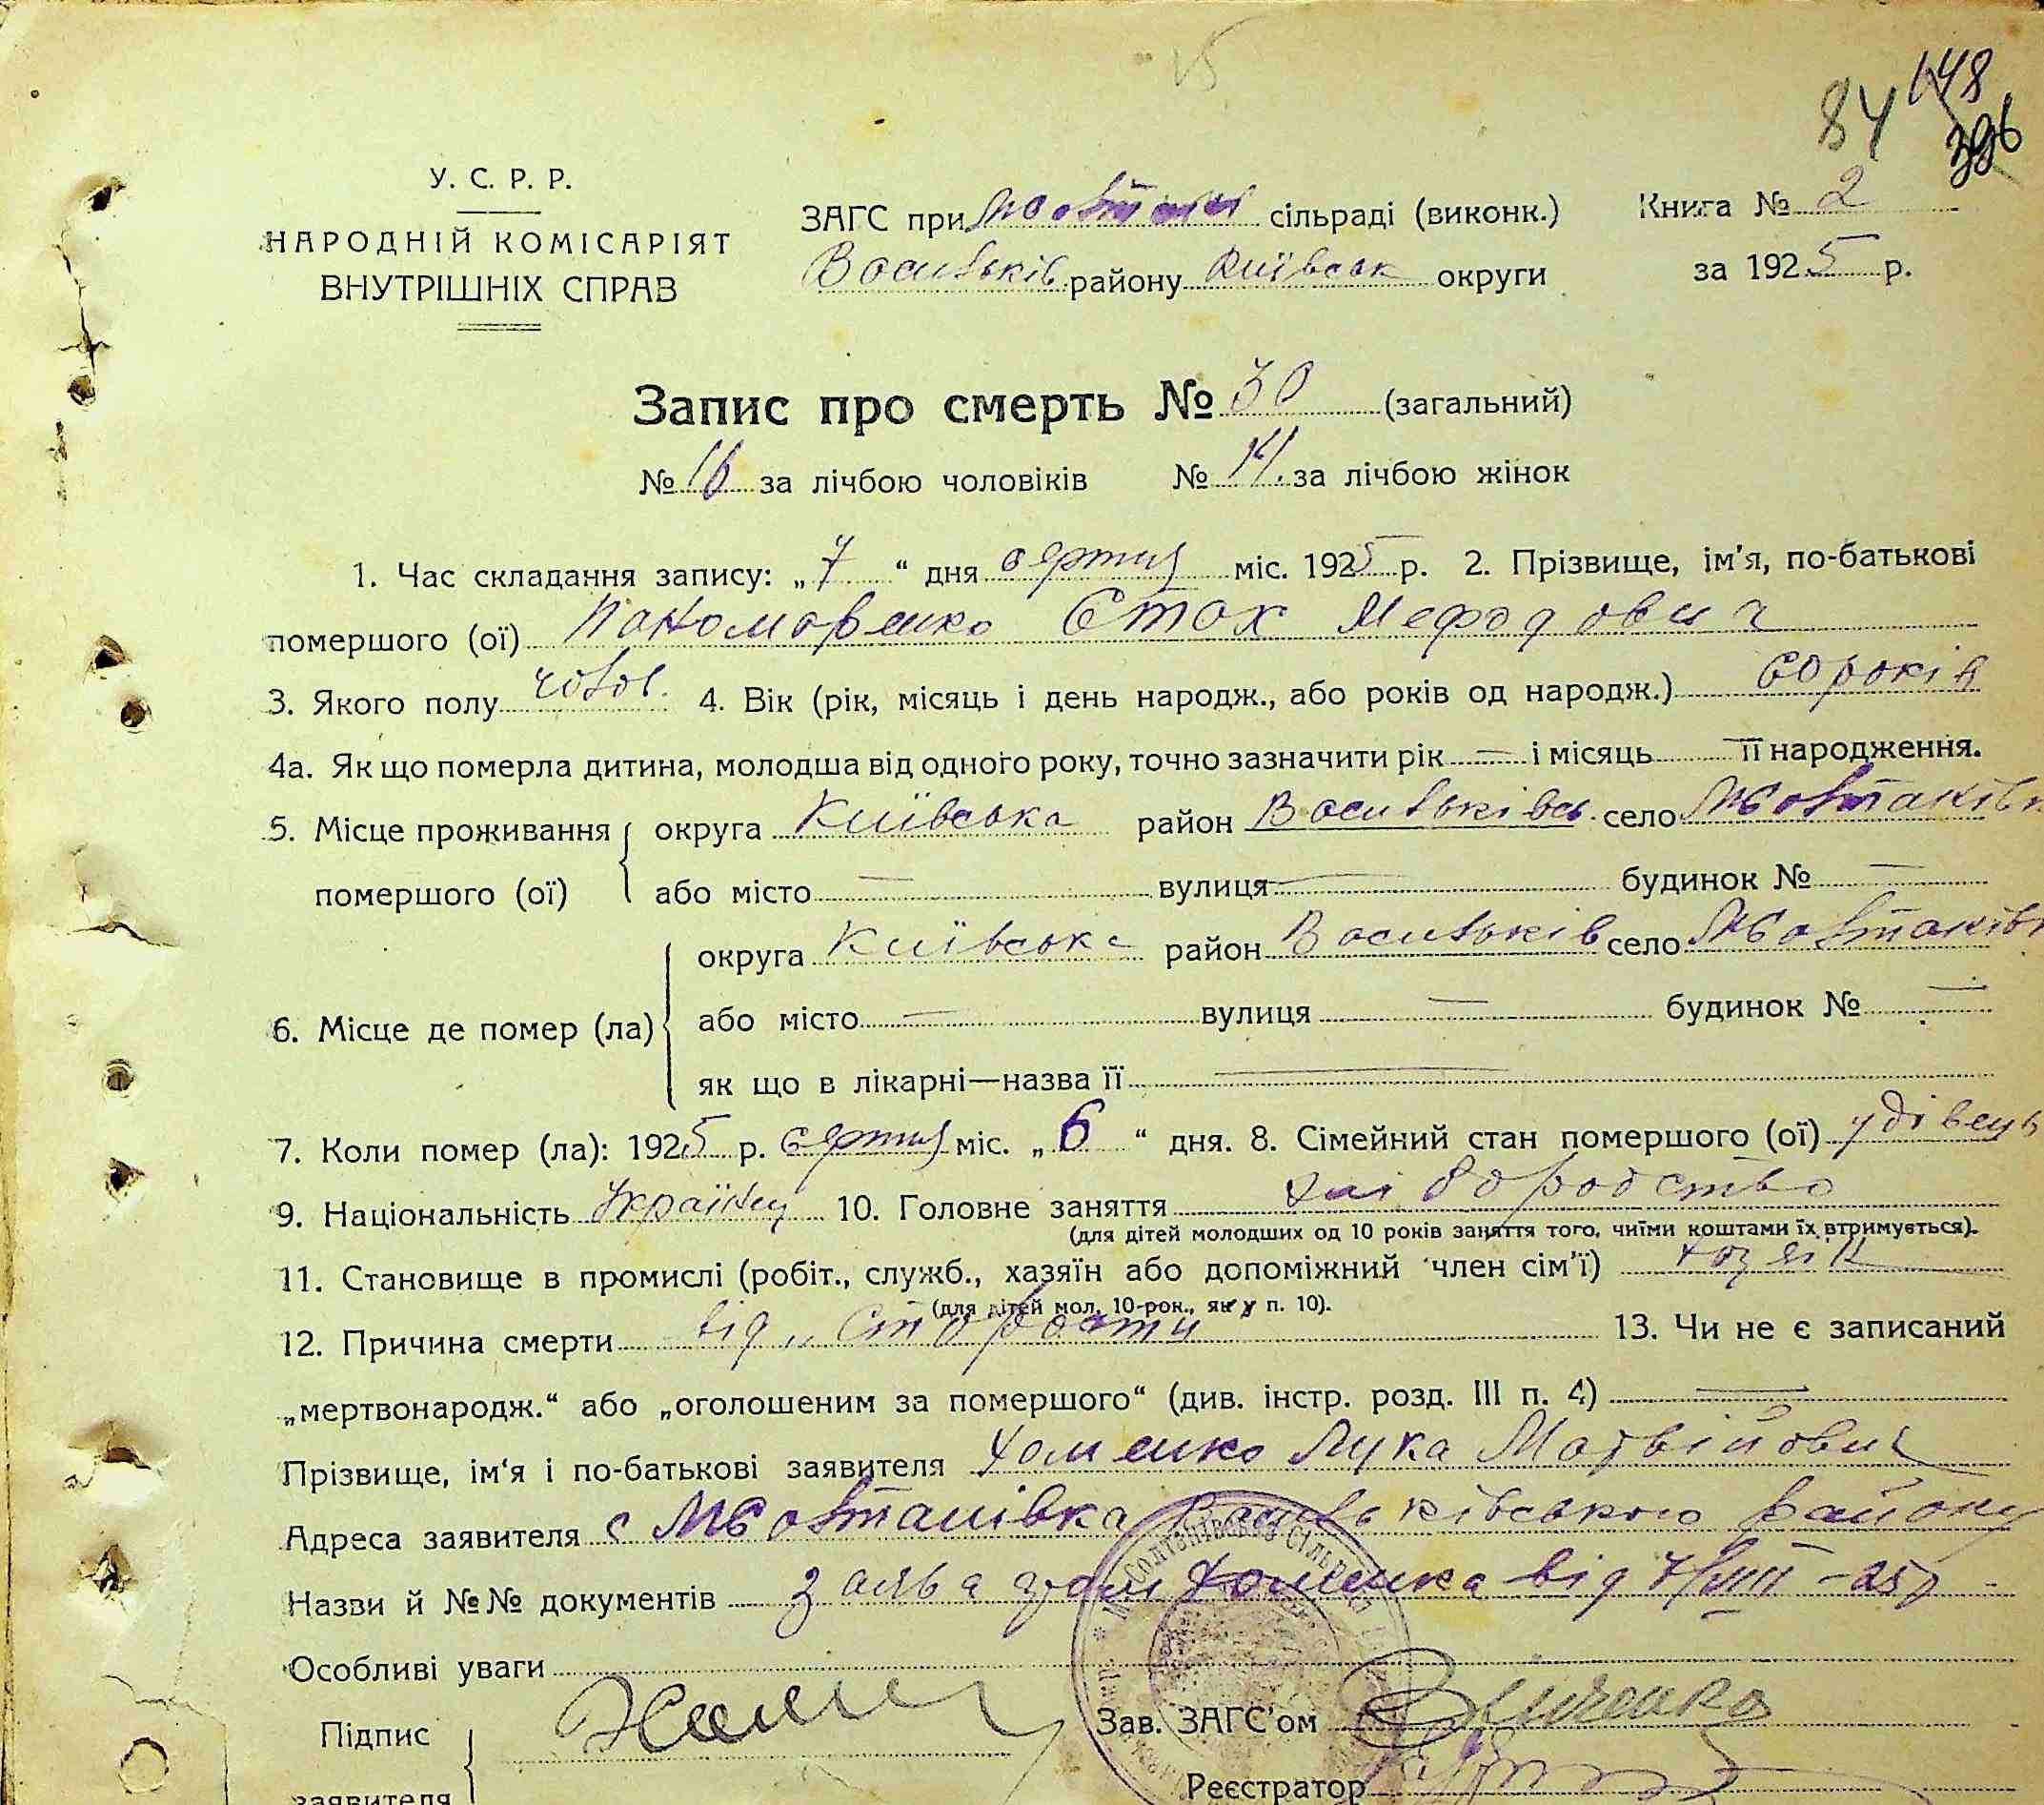 84 148
396
У. С. Р. Р.
НАРОДНІЙ КОМІСАРІЯТ
ВНУТРІШНІХ СПРАВ
ЗАГС при сільраді (виконк.)
Васильків району Київськ округи
Книга № 2
за 1925 р.
Запис про смерть № 30 (загальний)
№ 16 за лічбою чоловіків № 14. за лічбою жінок
1. Час складання запису: „7“ дня серпня міс. 1925 р. 2. Прізвище, ім'я, по-батькові
помершого (ої) Паномаренко Стах Мефодович
3. Якого полу чолов. 4. Вік (рік, місяць і день народж., або років од народж.) 60 років
4а. Як що померла дитина, молодша від одного року, точно зазначити рік — і місяць — її народження.
5. Місце проживання помершого (ої) округа Київська район Васильківсь. село
або місто — вулиця — будинок № —
6. Місце де помер (ла) округа Київська район Васильків село
або місто — вулиця — будинок № —
як що в лікарні—назва її —
7. Коли помер (ла): 1925 р. серпня міс. „6“ дня. 8. Сімейний стан помершого (ої) удівець
9. Національність Українец 10. Головне заняття хліборобство
(для дітей молодших од 10 років заняття того, чиїми коштами їх втримується).
11. Становище в промислі (робіт., служб., хазяїн або допоміжний член сім'ї) хазяін
(для дітей мол. 10-рок., як у п. 10).
12. Причина смерти від „Старости“ 13. Чи не є записаний
„мертвонародж.“ або „оголошеним за помершого“ (див. інстр. розд. III п. 4) —
Прізвище, ім'я і по-батькові заявителя Хоменко Лука Матвійович
Адреса заявителя с Васильківського району
Назви й №№ документів заява гром Хоменка від 7/VIII – 25 р
Особливі уваги
Підпис
заявителя
Зав. ЗАГС'ом
Реєстратор